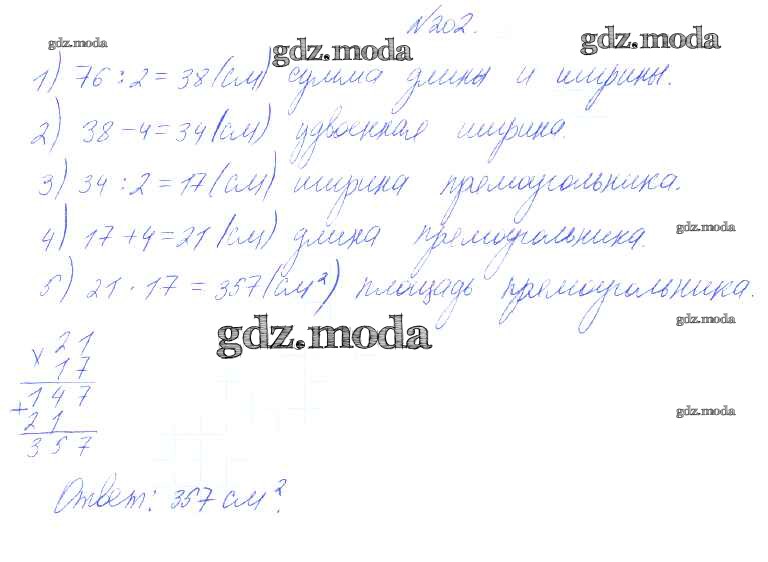 №202.
gdz.moda gdz.moda gdz.moda
1) 76 : 2 = 38 (см) сумма длины и ширины.
2) 38 - 4 = 34 (см) удвоенная ширина.
3) 34 : 2 = 17 (см) ширина прямоугольника.
gdz.moda
4) 17 + 4 = 21 (см) длина прямоугольника.
5) 21 · 17 = 357 (см²) площадь прямоугольника.
gdz.moda gdz.moda
× 21
17
+ 147
21
357
gdz.moda
Ответ: 357 см².